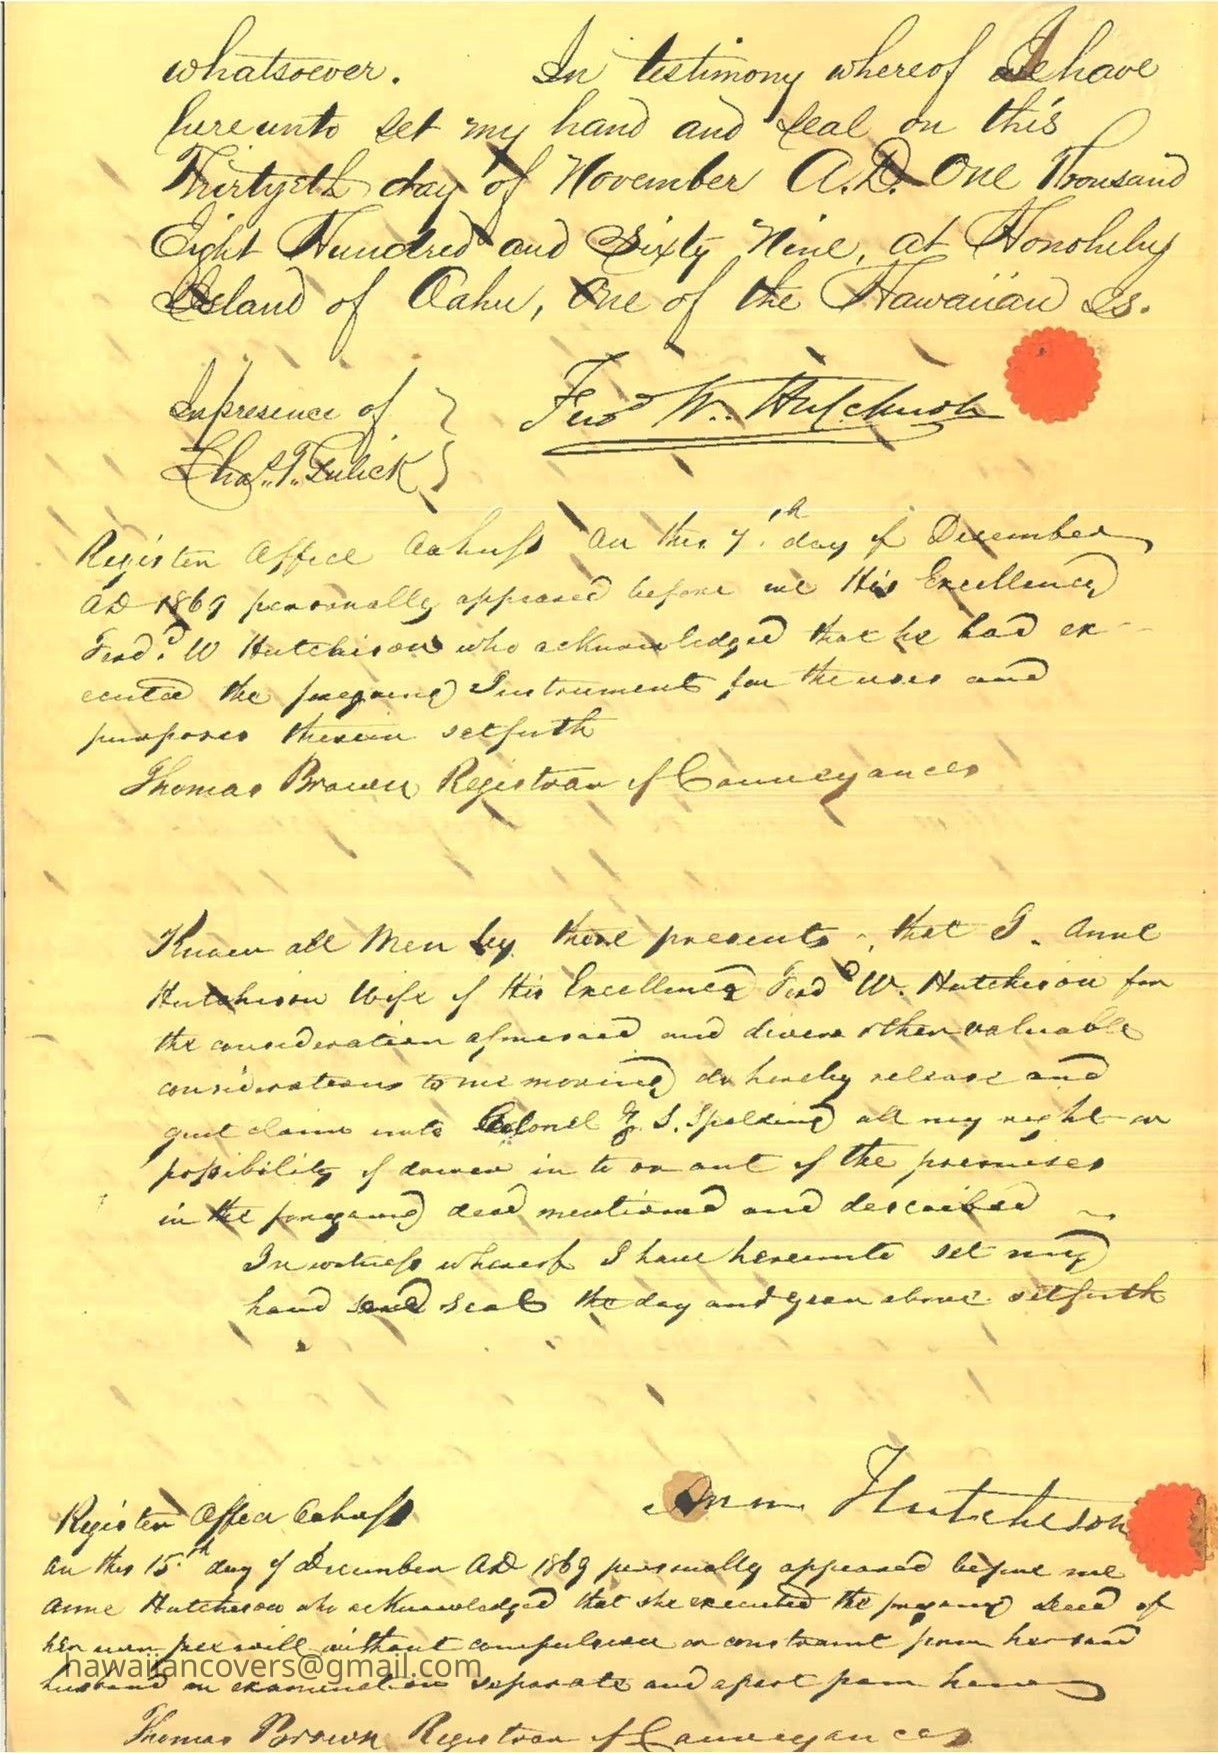 whatsoever. In testimony whereof I have
hereunto set my hand and seal on this
Thirtyeth day of November A.D. One Thousand
Eight Hundred and Sixty Nine, at Honolulu
Island of Oahu, One of the Hawaiian Is.
In presence of
Ferdd W. Hutchison
Chas. T. Gulick
Register Office Oahu ss On this 7th day of December
AD 1869 personally appeared before me His Excellency
Ferdd. W Hutchison who acknowledged that he had ex-
ecuted the foregoing Instrument for the uses and
purposes therein setforth
Thomas Brown Registrar of Conveyances
Know all Men by these presents, that I. Anne
Hutchison Wife of His Excellency Ferdd W. Hutchison for
the consideration aforesaid and divers other valuable
considerations to me moving do hereby release and
quit claim unto Colonel Z. S. Spalding all my right or
possibility of dower in to or out of the premises
in the foregoing deed mentioned and described
In witness whereof I have hereunto set my
hand and seal the day and year above setforth
Ann Hutcheson
Register Office Oahu ss
On this 15th day of December AD 1869 personally appeared before me
Anne Hutcheson who acknowledged that she executed the foregoing deed of
her own free will without compulsion or constraint from her said
hawaiiancovers@gmail.com
husband on examination separate and apart from him
Thomas Brown Registrar of Conveyances